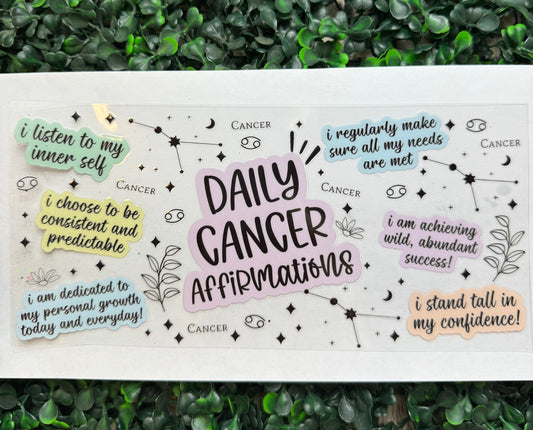 i listen to my
inner self
CANCER
i regularly make
sure all my needs
are met
CANCER
CANCER
CANCER
i choose to be
consistent and
predictable
DAILY
CANCER
AFFIRMATIONS
i am achieving
wild, abundant
success!
CANCER
CANCER
i am dedicated to
my personal growth
today and everyday!
i stand tall in
my confidence!
CANCER
CANCER